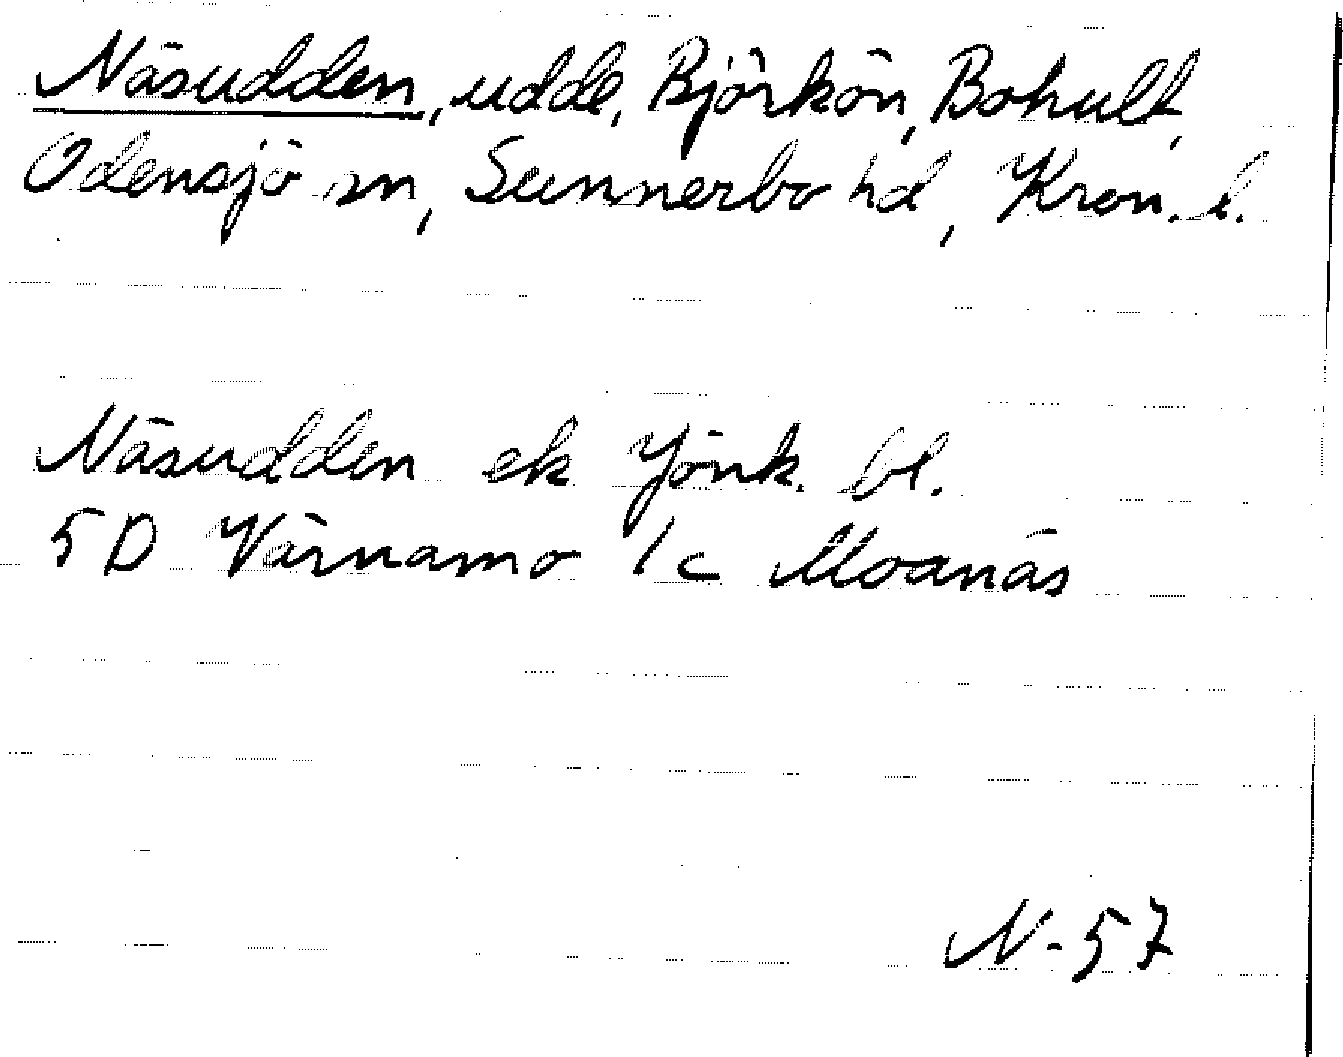 Näsudden, udde, Björkön, Bohult,
Odensjö sn, Sunnerbo hd, Kron. l.
Näsudden ek Jönk. bl.
5D Värnamo 1c Moanäs
N-57